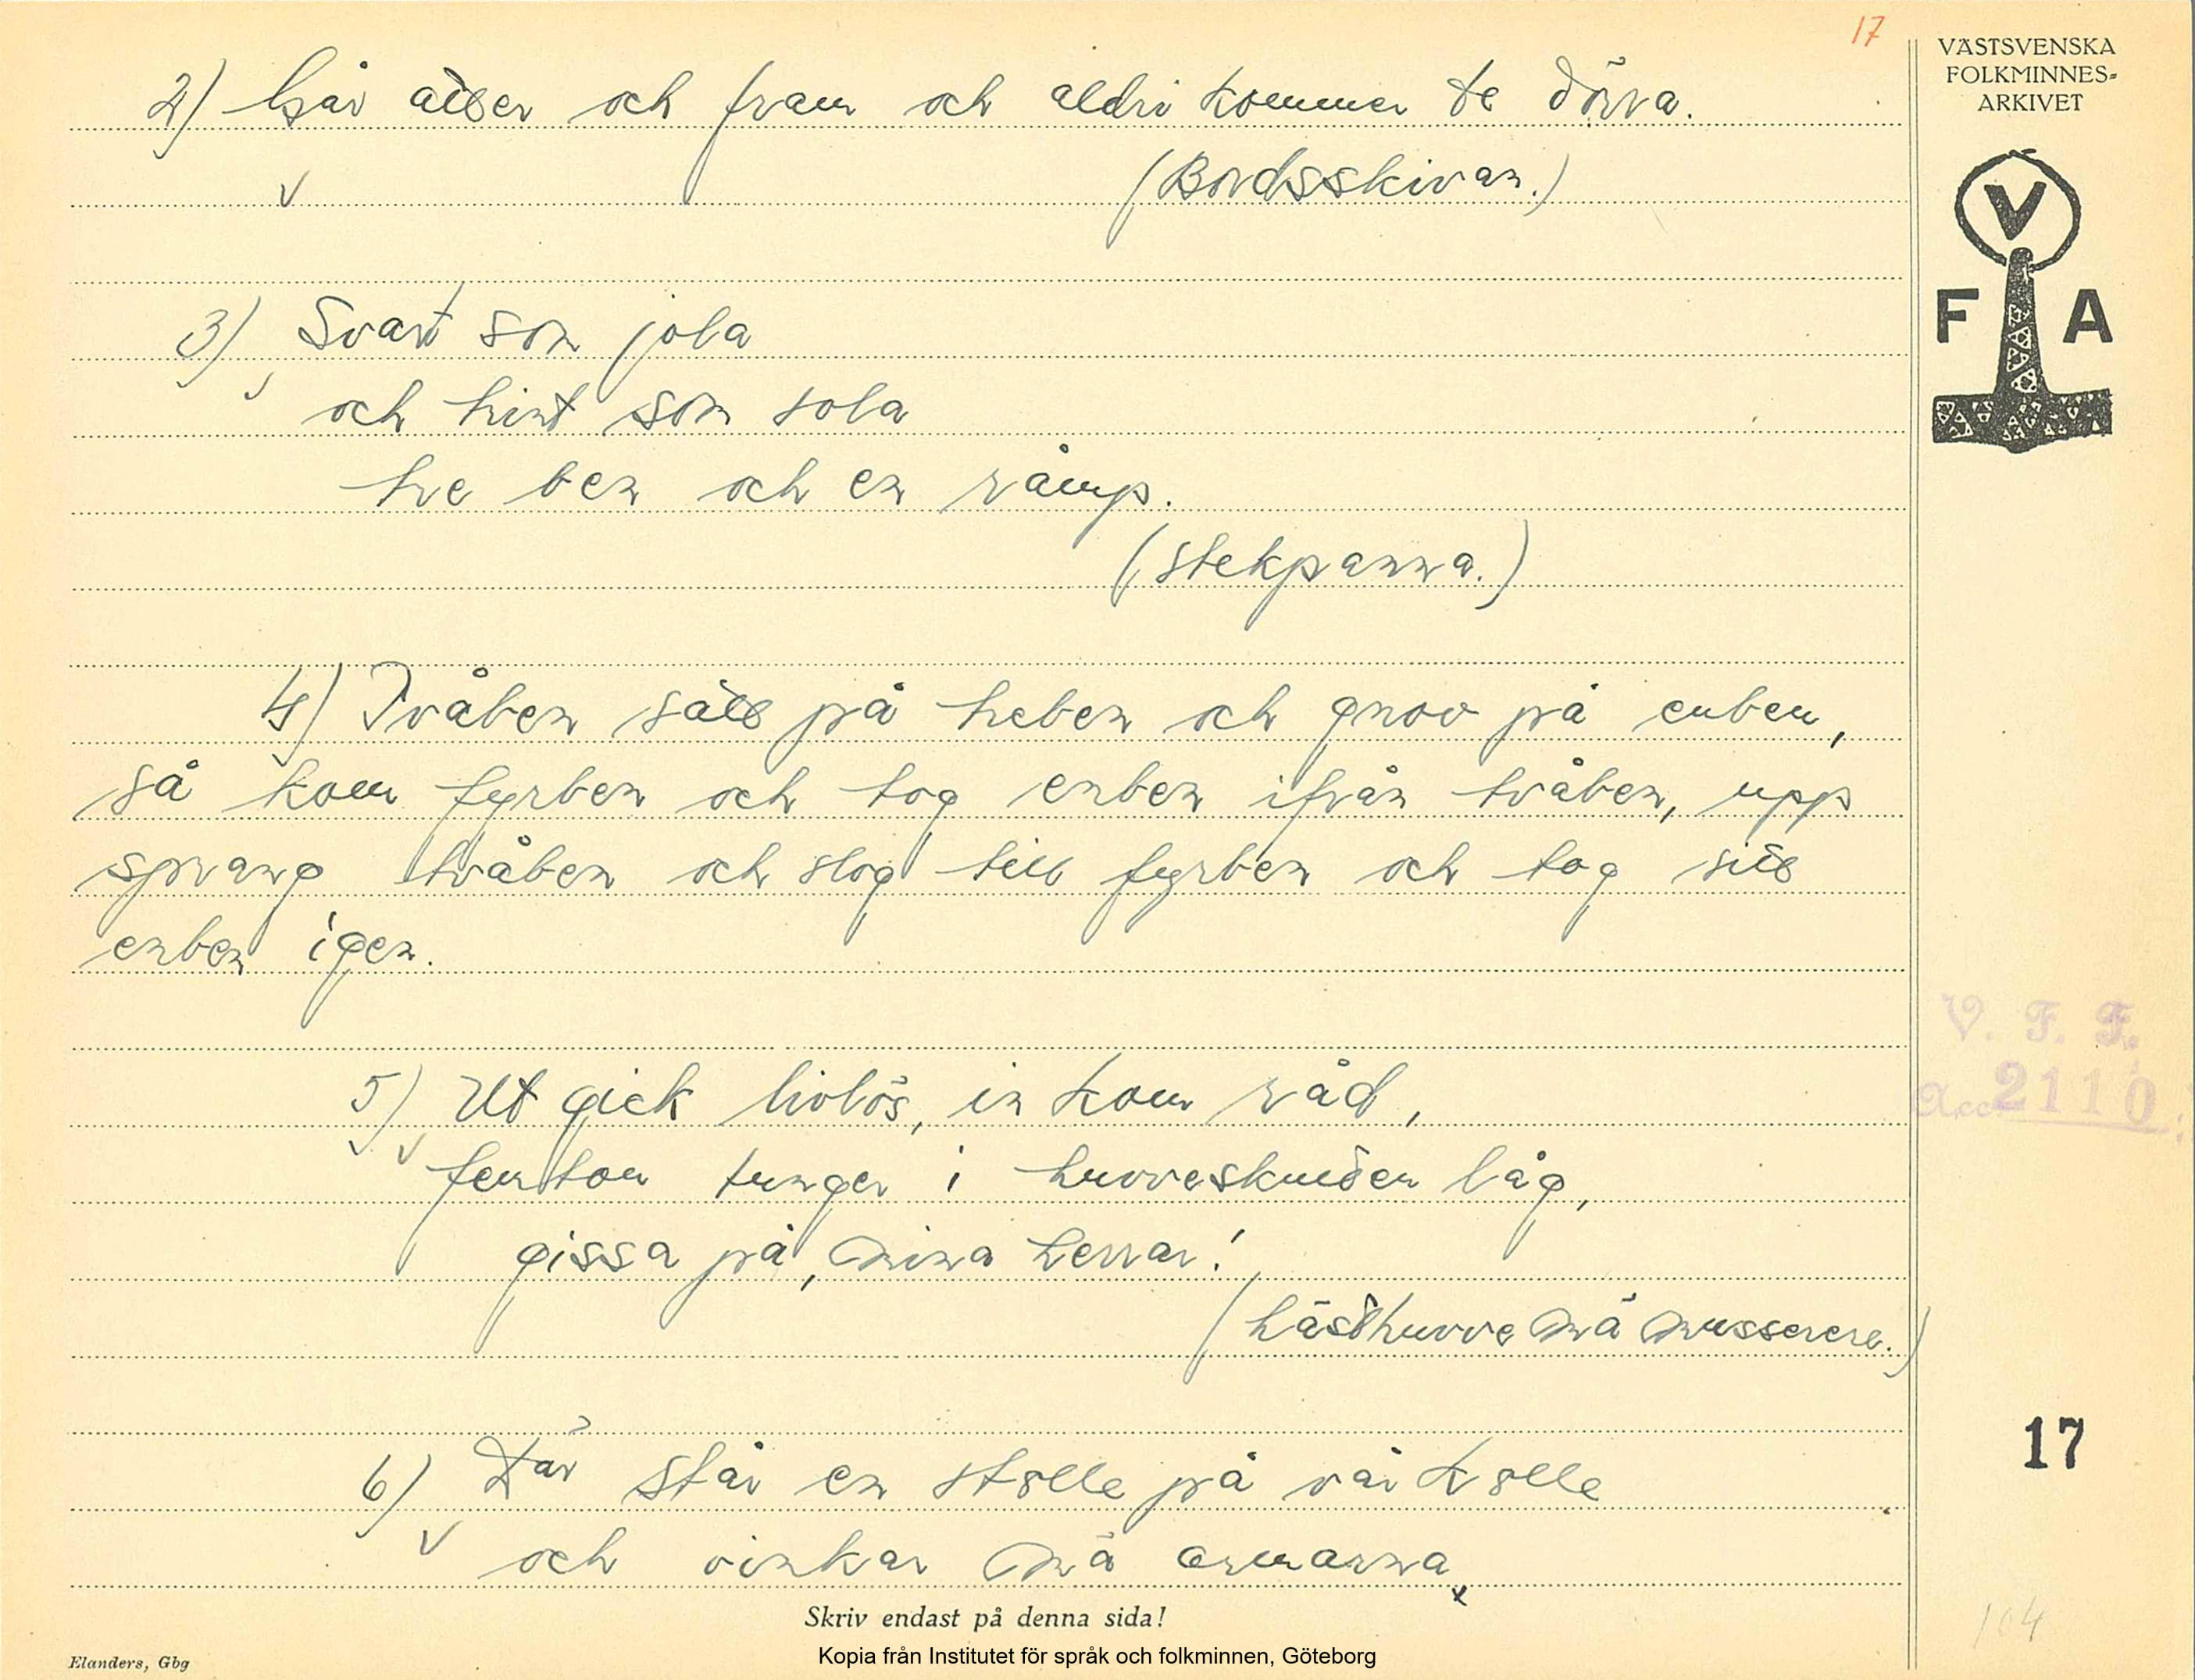 17
VÄSTSVENSKA
FOLKMINNES-
ARKIVET
2) Går åtter och fram och aldri kommer te dörra.
(Bordsskivan.)
V
F A
3) Svart som jola
och trint som sola
tre ben och enråmp.
(Stekpanna.)
4) Tvåben satt på treben och gnov på enben,
så kom fyrben och tog enben ifrån tvåben, upp
sprang tvåben och slog till fyrben och tog sitt
enben igen.
V. F. F.
Acc. 2110:
5) Ut gick livlös, in kom råd,
femton tunger i huvveskuden låg,
gissa på, mina herrar!
(Hästhuvve mä musserere.)
17
6) Där står en stolle på vår kolle
och vinkar mä armarna
Skriv endast på denna sida!
104
Kopia från Institutet för språk och folkminnen, Göteborg
Elanders, Gbg